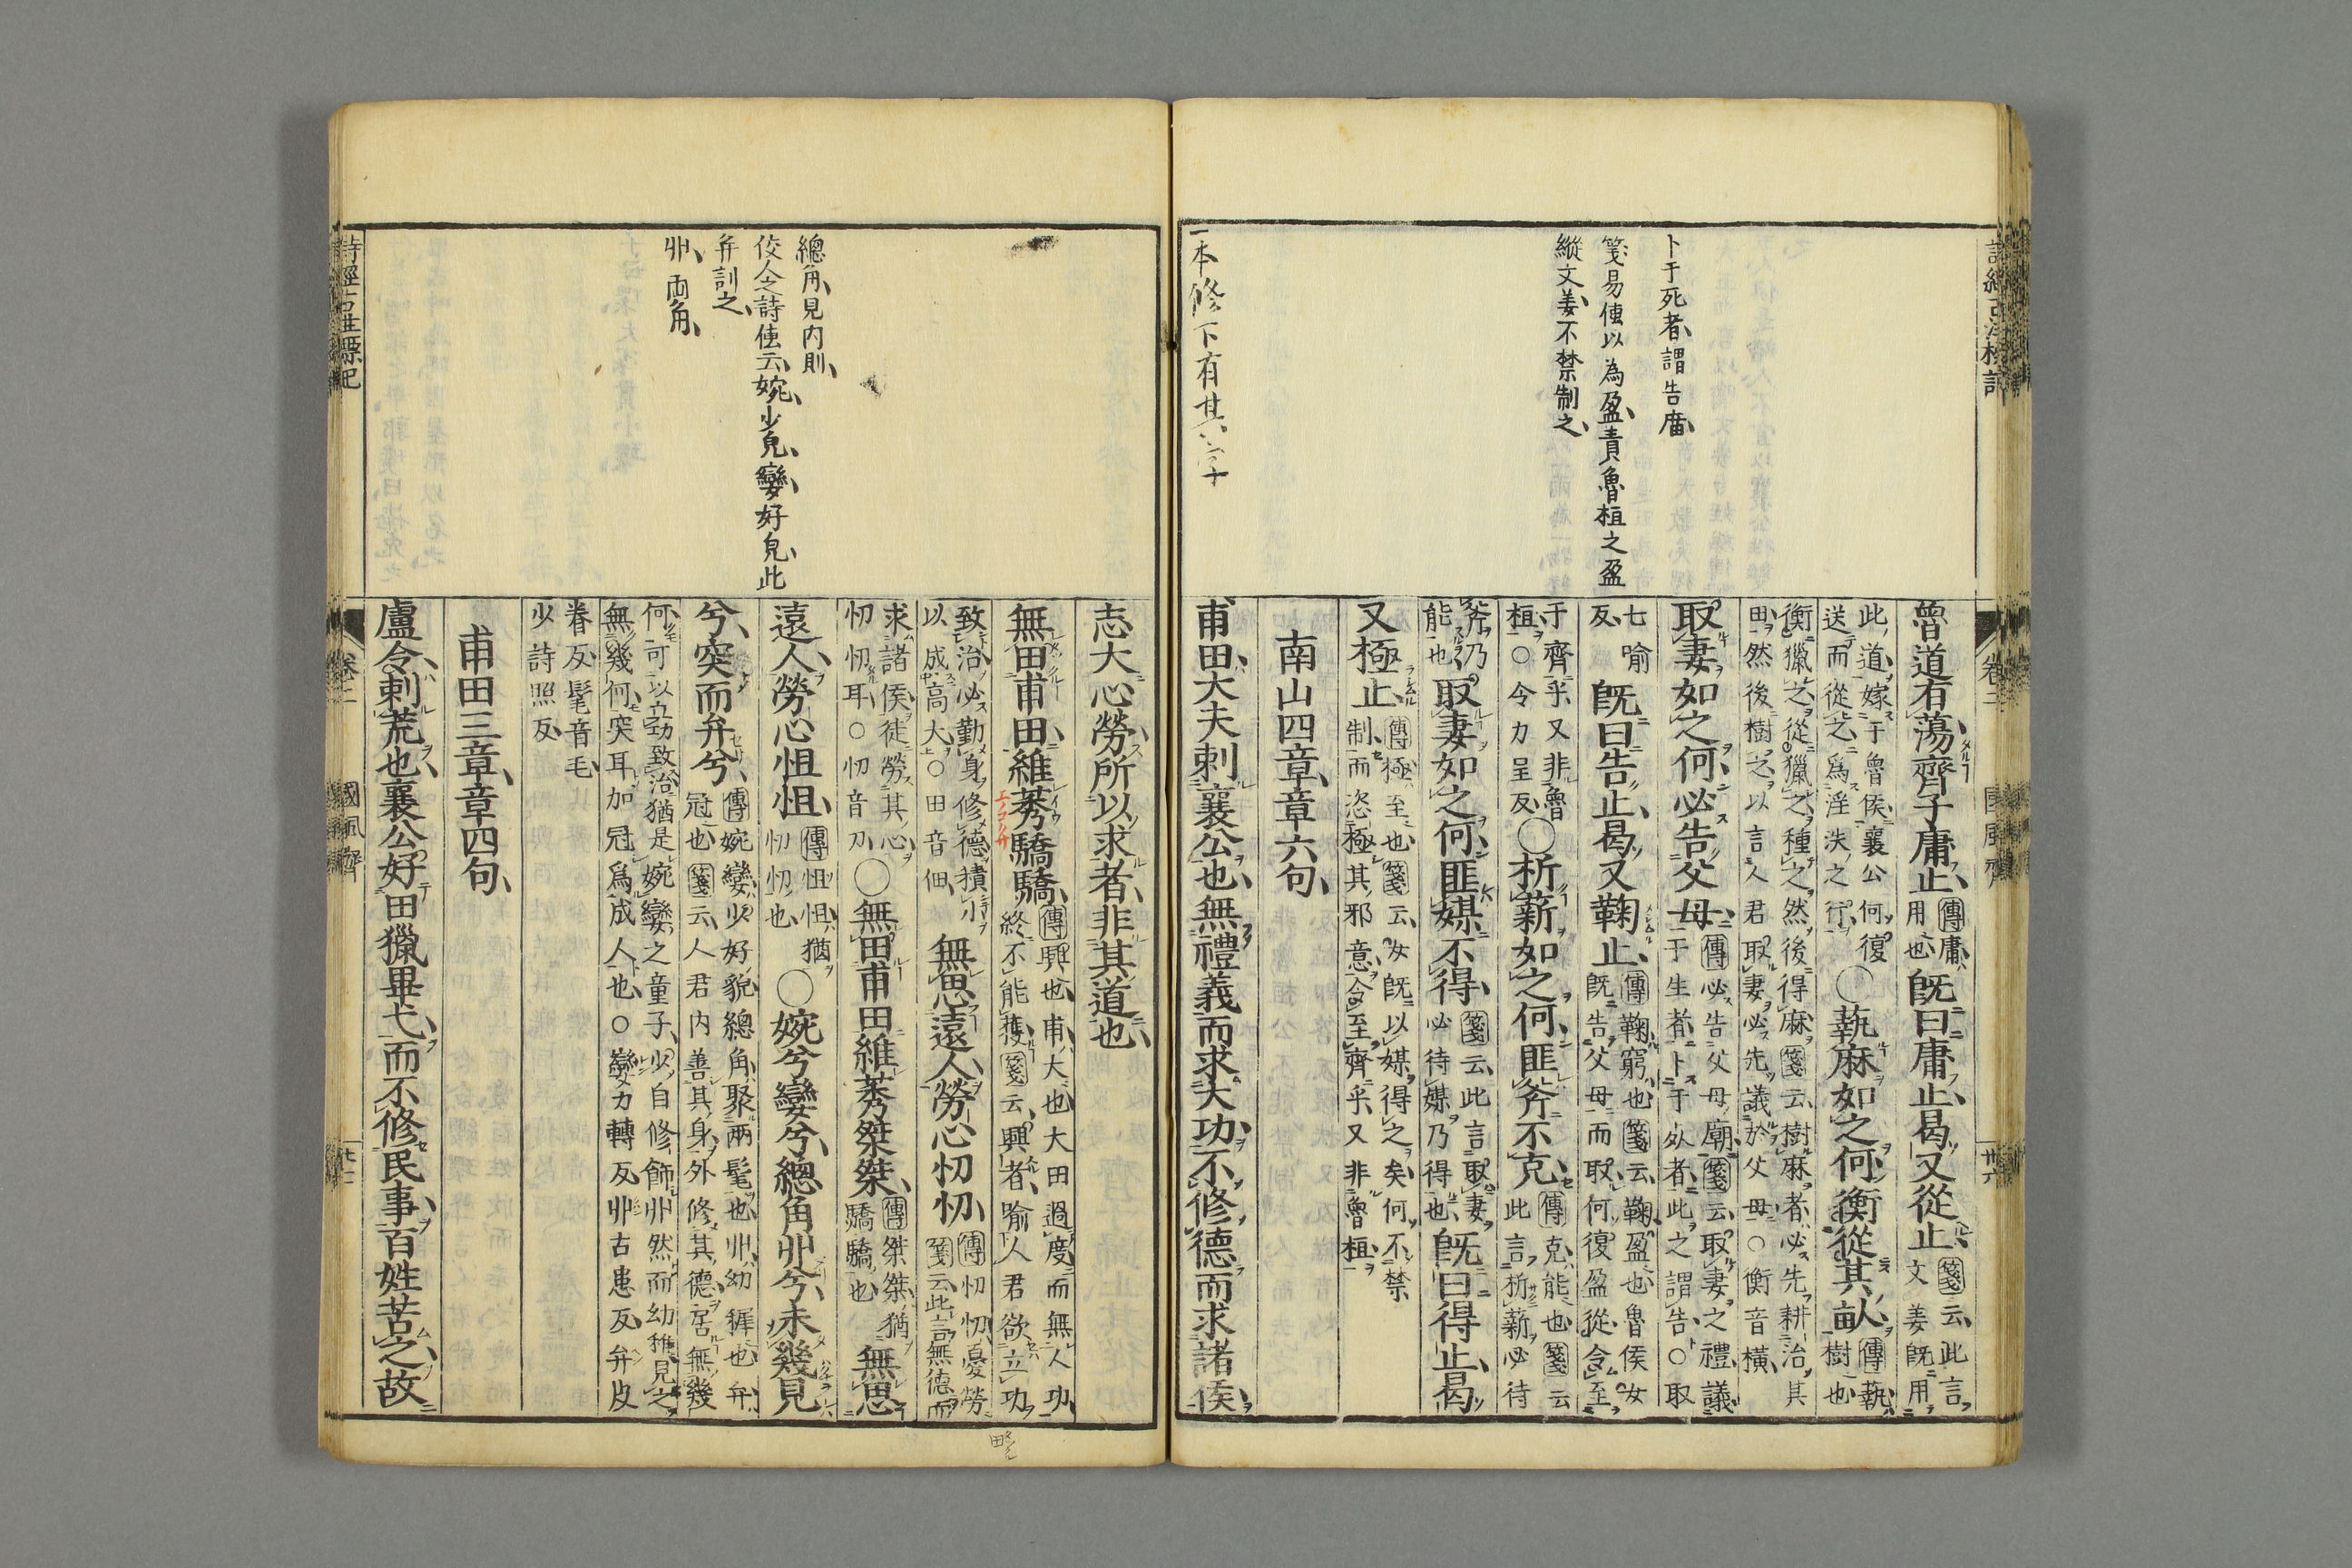 卜于死者、謂告廟、
箋易傳以為盈、責魯桓之盈
縱文姜、不禁制之、
一本修下有其字
魯道有蕩、齊子庸止、傳庸、用也、既曰庸止、曷又從止、箋云、此言、文姜既用
此道、嫁于魯侯、襄公何復送而從之、爲淫泆之行、○蓺麻如之何、衡從其畝、傳蓺、樹也、
衡獵之、從獵之、種之、然後得麻、箋云、樹麻者、必先耕治其田、然後樹之、以言人君取妻、必先議於父母、○衡音橫、
取妻如之何、必告父母、傳必告父母廟、箋云、取妻之禮、議于生者、卜于死者、此之謂告、○取
七喻反、既曰告止、曷又鞠止、傳鞠、窮也、箋云、鞠、盈也、魯侯女既告父母而取、何復盈從、令至
于齊乎、又非魯桓、○令力呈反、○析薪如之何、匪斧不克、傳克、能也、箋云、此言析薪必待
斧乃能也、取妻如之何、匪媒不得、箋云、此言取妻必待媒乃得也、既曰得止、曷
又極止、傳極、至也、箋云、女既以媒得之矣、何不禁制、而恣極其邪意、令至齊乎、又非魯桓、
南山四章、章六句、
甫田、大夫刺襄公也、無禮義而求大功、不修德而求諸侯、
卷二
國風 齊
卅六
總角、見内則、
佼人之詩傳云、婉、少皃、孌、好皃、此
弁訓之、
丱、両角、
志大心勞、所以求者、非其道也、
無田甫田、維莠驕驕、傳興也、甫、大也、大田過度、而無人功、終不能獲、箋云、興者、喻人君欲立功
致治、必勤身修德、積小以成高大、○田音佃、無思遠人、勞心忉忉、傳忉忉、憂勞、箋云、此言無德而
求諸侯、徒勞其心忉忉耳、○忉音刀、○無田甫田、維莠桀桀、傳桀桀、猶驕驕也、無思
遠人、勞心怛怛、傳怛怛、猶忉忉也、○婉兮孌兮、總角丱兮、未幾見
兮、突而弁兮、傳婉孌、少好貌、總角、聚兩髦也、丱、幼穉也、弁、冠也、箋云、人君内善其身、外修其德、居無幾
何、可以立功致治、猶是婉孌之童子、少自修飾、丱然而幼穉、見之無幾何、突耳加冠爲成人也、○孌力轉反、丱古患反、弁皮
眷反、髦音毛、少詩照反、
甫田三章、章四句、
盧令、刺荒也、襄公好田獵畢弋、而不修民事、百姓苦之、故
詩經古註標記
卷二
國風 齊